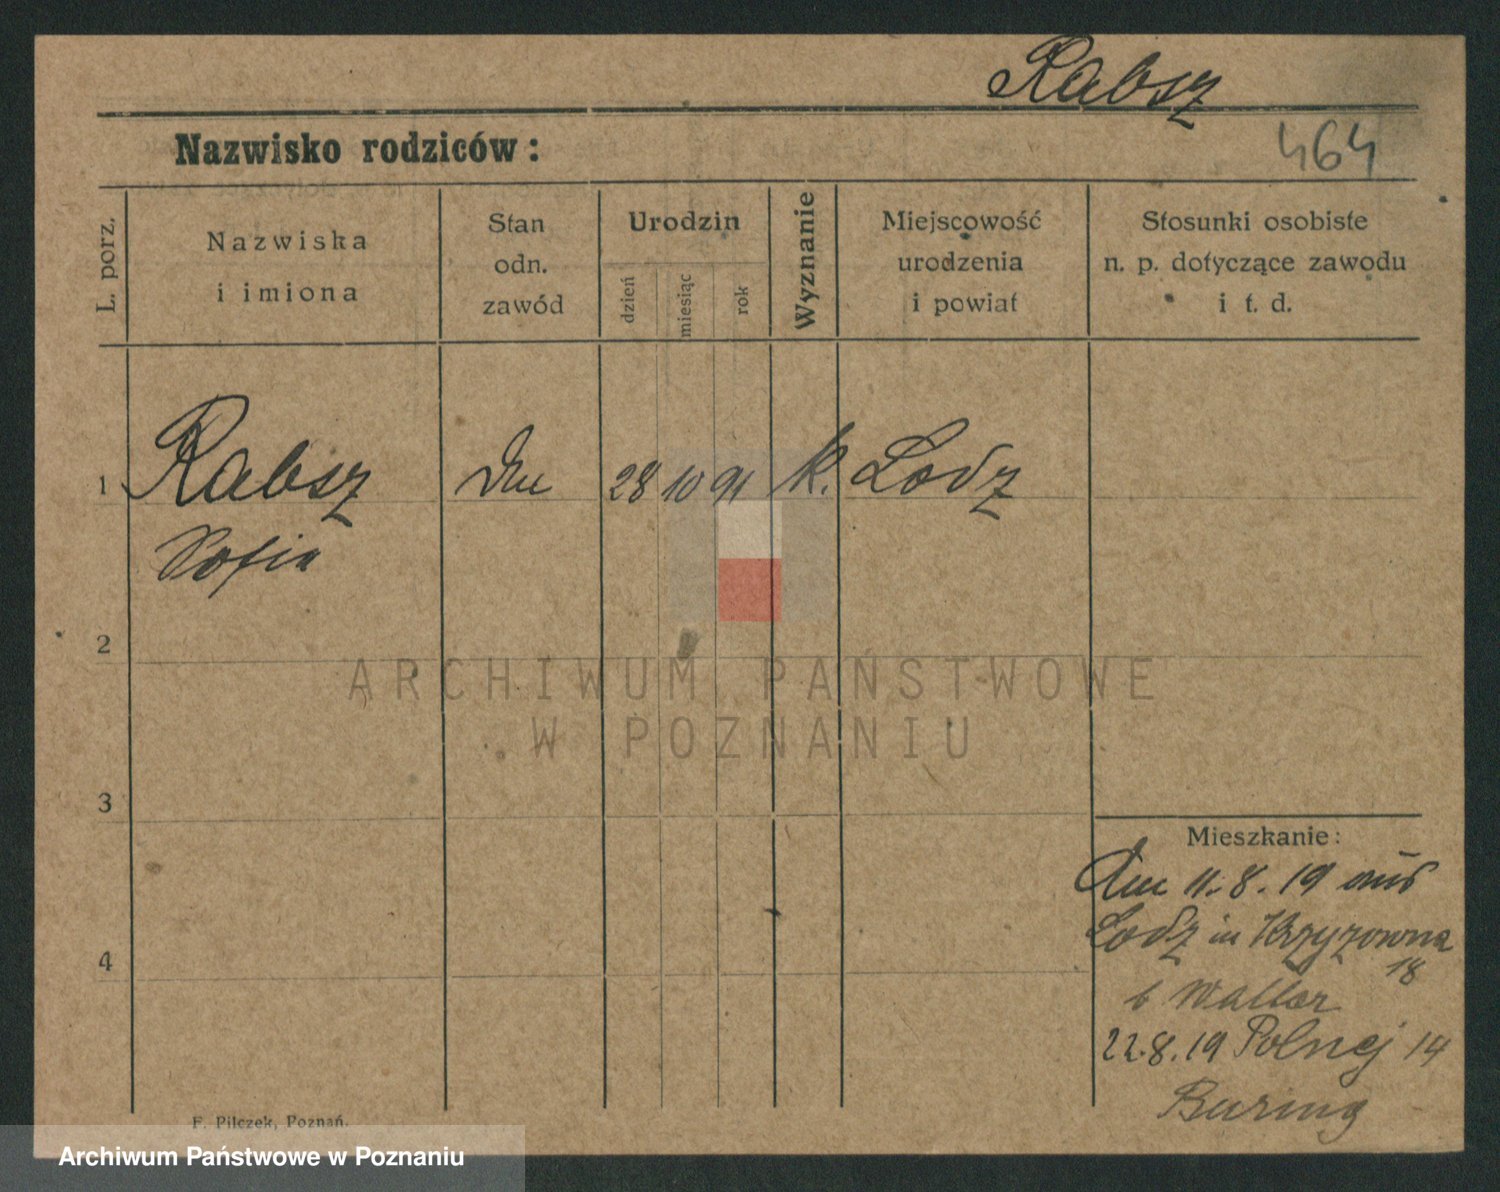 Rabsz
Nazwisko rodziców:
464
L. porz.
Nazwiska
i imiona
Stan
odn.
zawód
Urodzin
dzień
miesiąc
rok
Wyznanie
Miejscowość
urodzenia
i powiat
Stosunki osobiste
n. p. dotyczące zawodu
i t. d.
1 Rabsz 28 10 91 k. Lodz
Sofia
2
ARCHIWUM PAŃSTWOWE
W POZNANIU
3
Mieszkanie:
11.8.19 aus
Lodz in Krzyzowna
18
b
4
22.8.19 Polnej 14
F. Pilczek, Poznań.
Archiwum Państwowe w Poznaniu